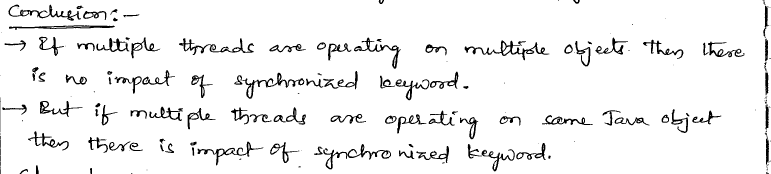 Conclusion:-
→ If multiple threads are operating on multiple objects. Then there
is no impact of synchronized keyword.
→ But if multiple threads are operating on same Java object
then there is impact of synchronized keyword.